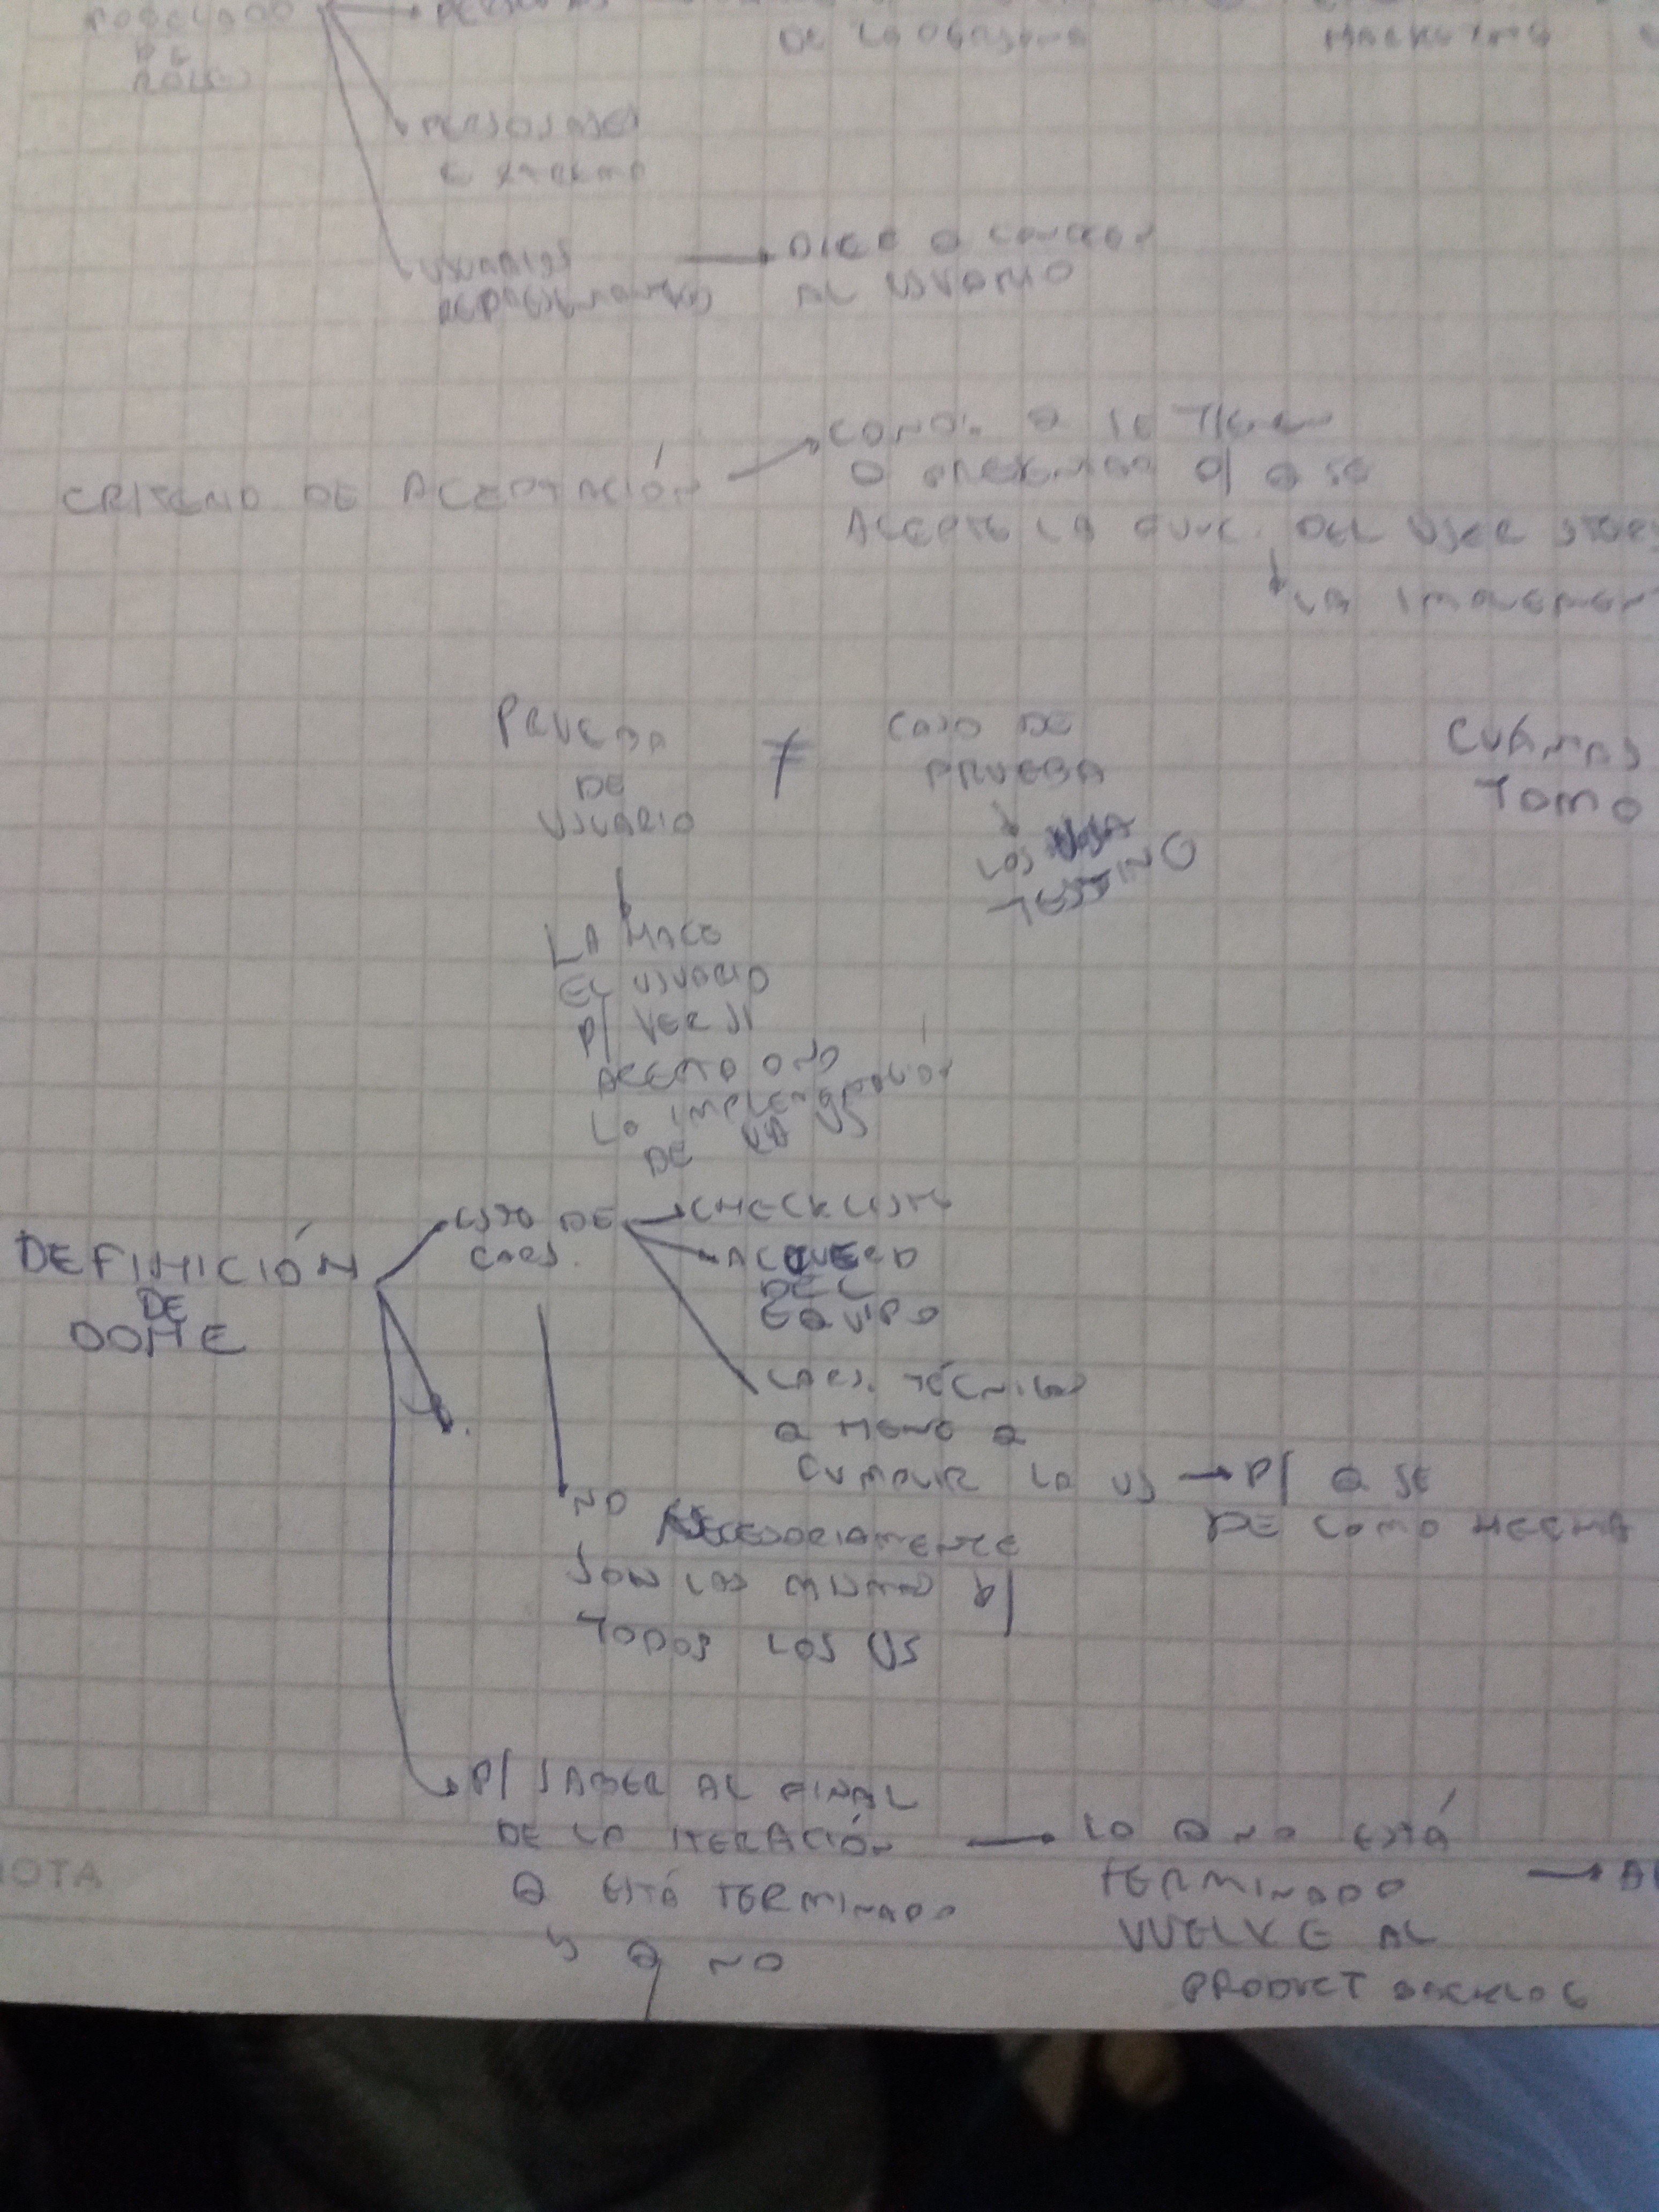 MODELADO
DE
ROLES
DE LA PERSONA
MARKETING
PERSONAJES
EXTREMO
USUARIOS
REPRESENTANTES
DICE Q CONOCEN
AL USUARIO
CRITERIO DE ACEPTACIÓN
COND. Q SE TIENEN
Q P/ Q SE
ACEPTE LA FUNC. DEL USER STORY
LA IMPLEMENT
PRUEBA
DE
USUARIO
≠
CASO DE
PRUEBA
LOS USA
TESTING
CUÁNTAS
TOMO
LA HACE
EL USUARIO
P/ VER SI
ACEPTA O NO
LA IMPLEMENTACIÓN
DE LA US
DEFINICIÓN
DE
DONE
LISTA DE
CARS.
CHECKLISTS
ACUERDO
DEL
EQUIPO
CARS. TÉCNICAS
Q TIENE Q
CUMPLIR LA US → P/ Q SE
DE COMO HECHA
NO NECESARIAMENTE
SON LAS MISMAS P/
TODOS LOS US
P/ SABER AL FINAL
DE LA ITERACIÓN
Q ESTÁ TERMINADO
Y Q NO
LO Q NO ESTÁ
TERMINADO
VUELVE AL
PRODUCT BACKLOG
NOTA